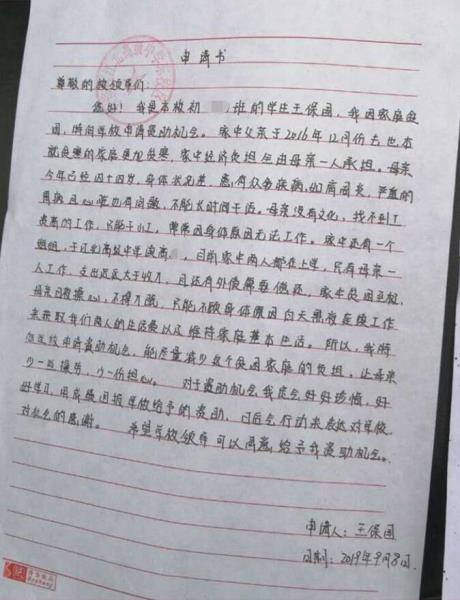 申请书
尊敬的校领导们:
您好!我是本校初 班的学生王保国,我因家庭贫
困,特向学校申请资助机会。家中父亲于2016年12月份去世本
就贫寒的家庭更加贫寒,家中经济负担全由母亲一人承担。母亲
今年已经四十四岁,身体状况差,患有众多疾病,如肩周炎,严重的
胃病且心脏也有问题,不能长时间干活。母亲没有文化,找不到工
资高的工作,只能干小工,常常因身体原因无法工作。家中还有一个
姐姐,于 高级中学读高 ,目前家中两人都在上学,只有母亲一
人工作,支出远远大于收入,且还有外债需要偿还,家中贫困至极,
母亲日夜操心,不得入睡,只能不顾身体原因白天黑夜连续工作
来获取我们两人的生活费以及维持家庭基本生活。所以,我特
向学校申请资助机会,能尽量减少这个贫困家庭的负担。让母亲
少一些操劳,少一份担心。对于资助机会我定会好好珍惜,好
好学习,用成绩回报学校给予的资助,日后会行动来表达对学校
对社会的感谢。希望学校领导可以同意给予我资助机会。
申请人:王保国
日期:2019年9月8日.